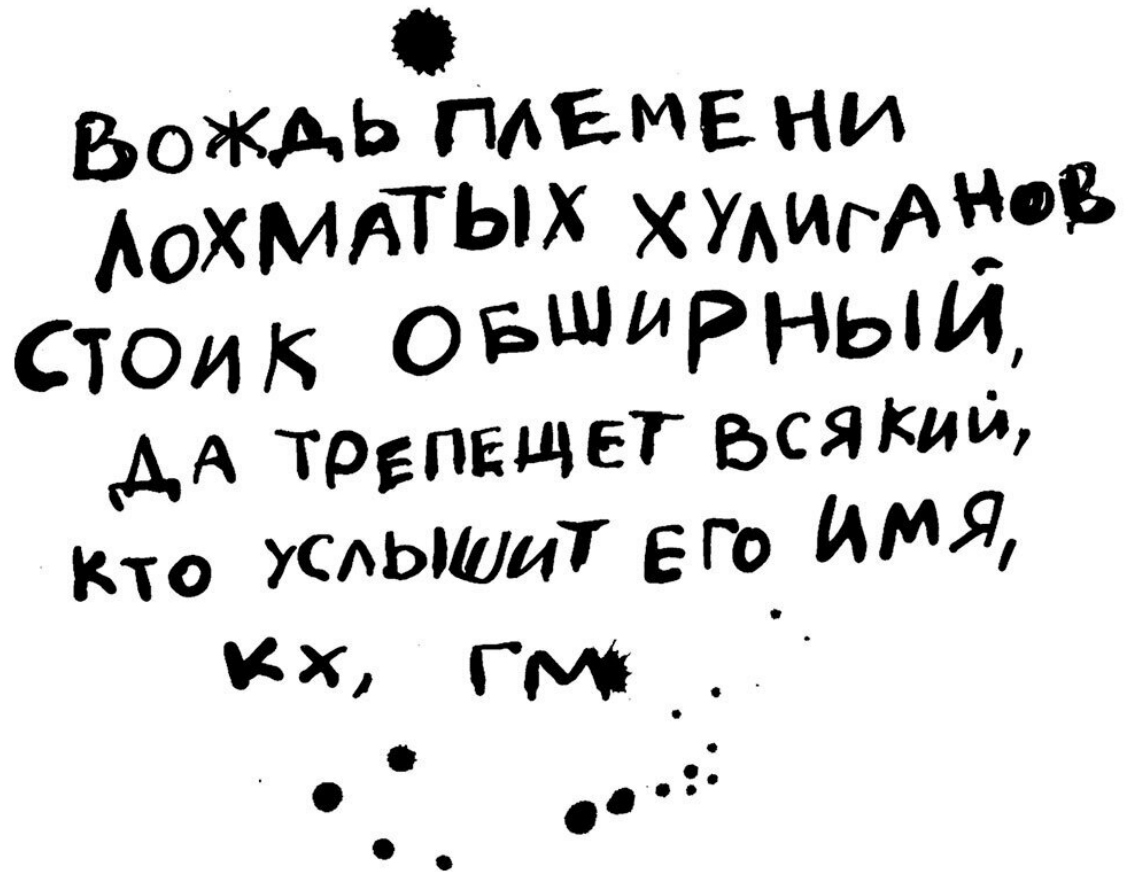 ВОЖДЬ ПЛЕМЕНИ
ЛОХМАТЫХ ХУЛИГАНОВ
СТОИК ОБШИРНЫЙ,
ДА ТРЕПЕЩЕТ ВСЯКИЙ,
КТО УСЛЫШИТ ЕГО ИМЯ,
КХ, ГМ